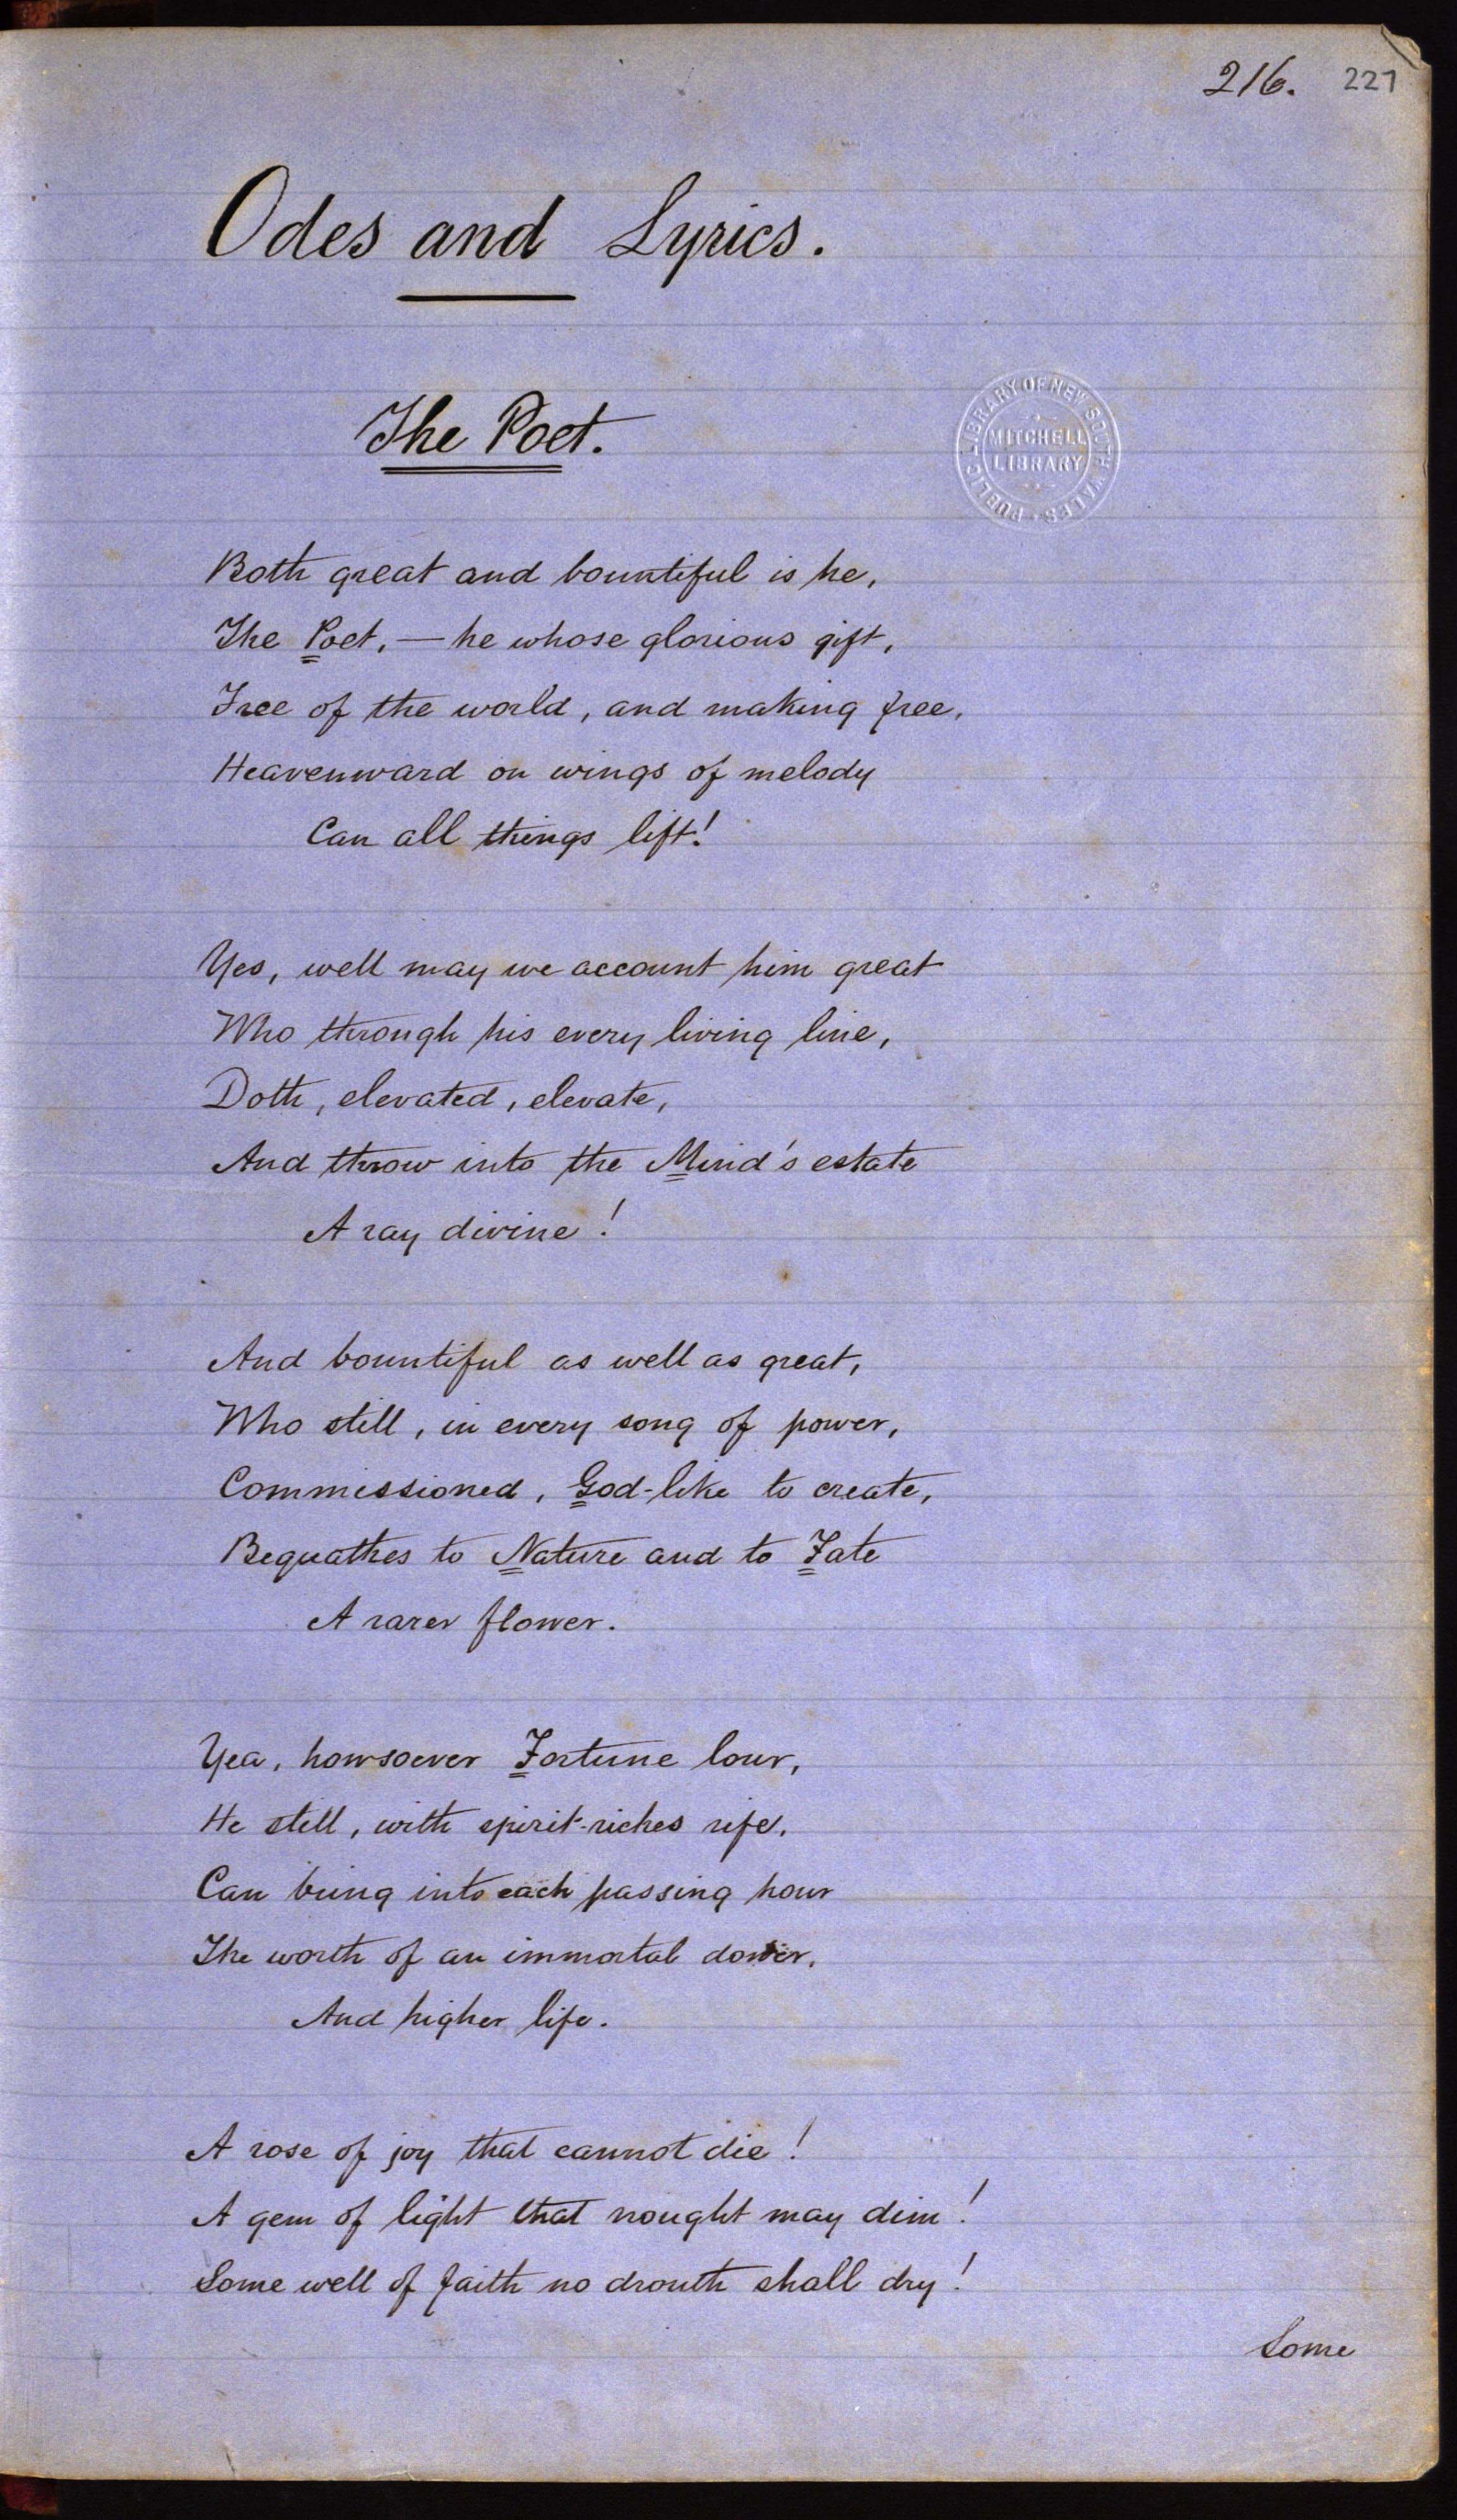 216. 227
Odes and Lyrics.
The Poet.
PUBLIC LIBRARY OF NEW SOUTH WALES
MITCHELL
LIBRARY
Both great and bountiful is he,
The Poet, — he whose glorious gift,
Free of the world, and making free,
Heavenward on wings of melody
Can all things lift!
Yes, well may we account him great
Who through his every living line,
Doth, elevated, elevate,
And throw into the Mind's estate
A ray divine!
And bountiful as well as great,
Who still, in every song of power,
Commissioned, God-like to create,
Bequathes to Nature and to Fate
A rarer flower.
Yea, howsoever Fortune lour,
He still, with spirit-riches rife,
Can bring into each passing hour
The worth of an immortal dower,
And higher life.
A rose of joy that cannot die!
A gem of light that nought may dim!
Some well of faith no drouth shall dry!
Some